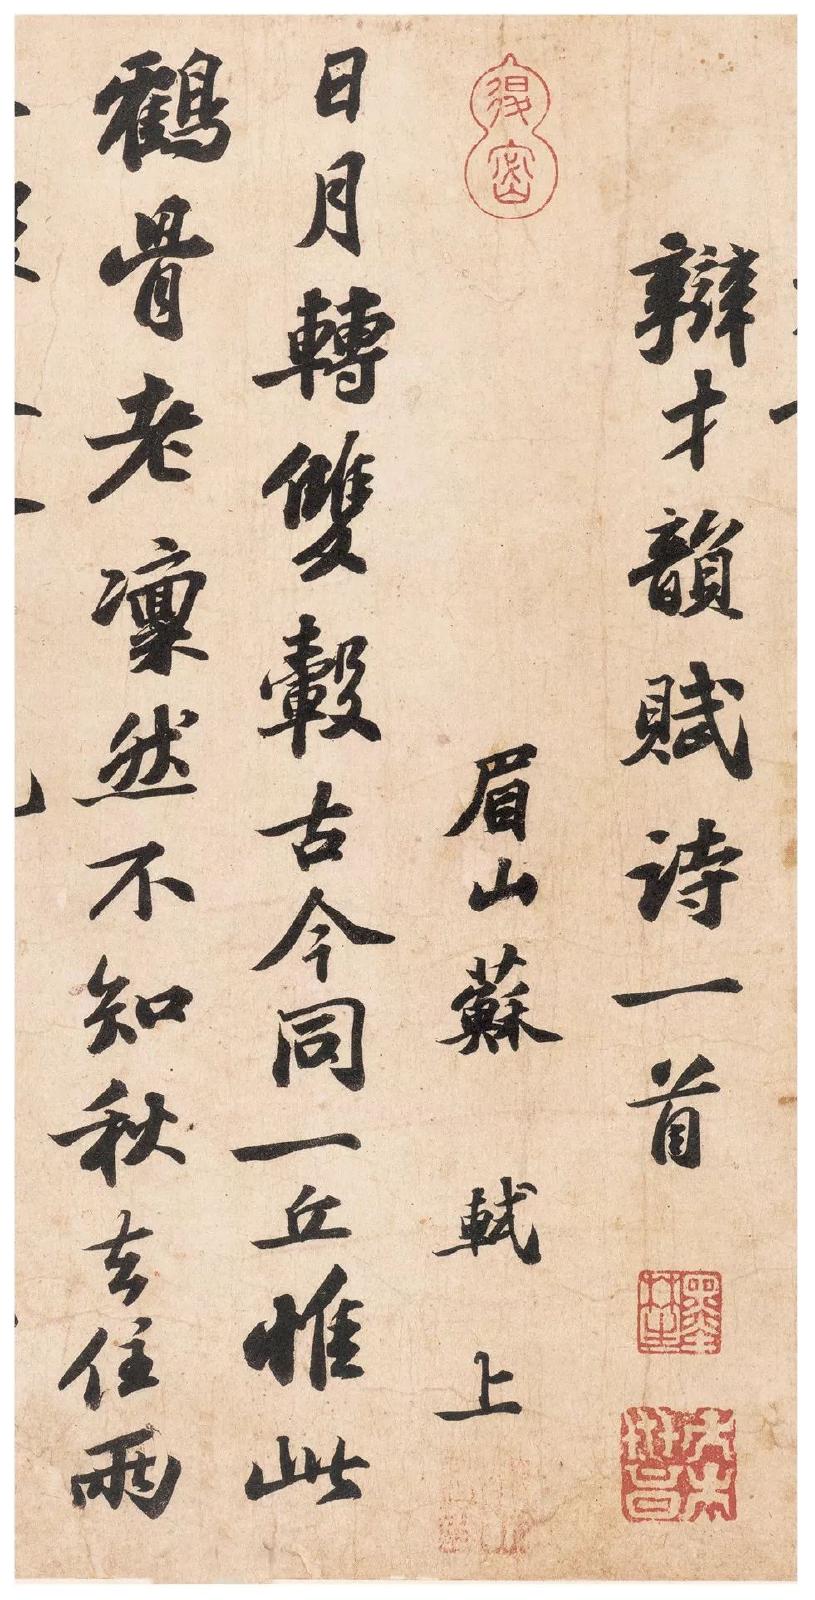 辯才韻賦詩一首
眉山蘇軾上
日月轉雙轂古今同一丘惟此
鶴骨老凜然不知秋去住兩